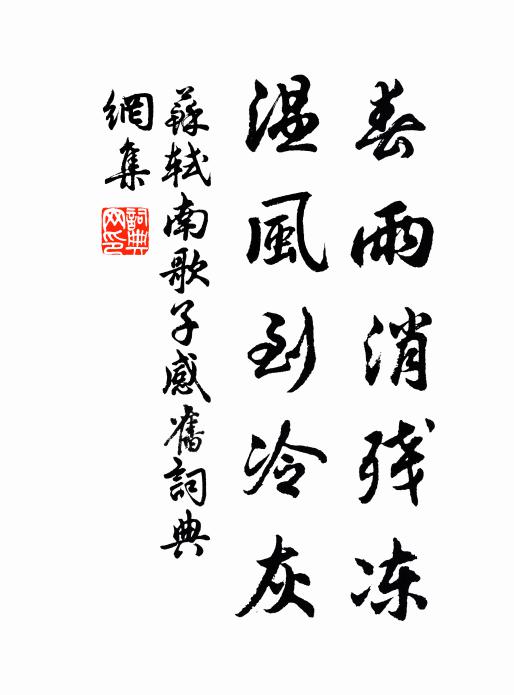 春雨消残冻
温風到冷灰
蘇軾南歌子感舊詞典
網集
詞典
网印